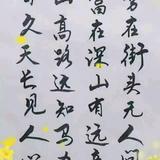 穷在街头无人问
富在深山有远亲
山高路远知马力
久天长见人心